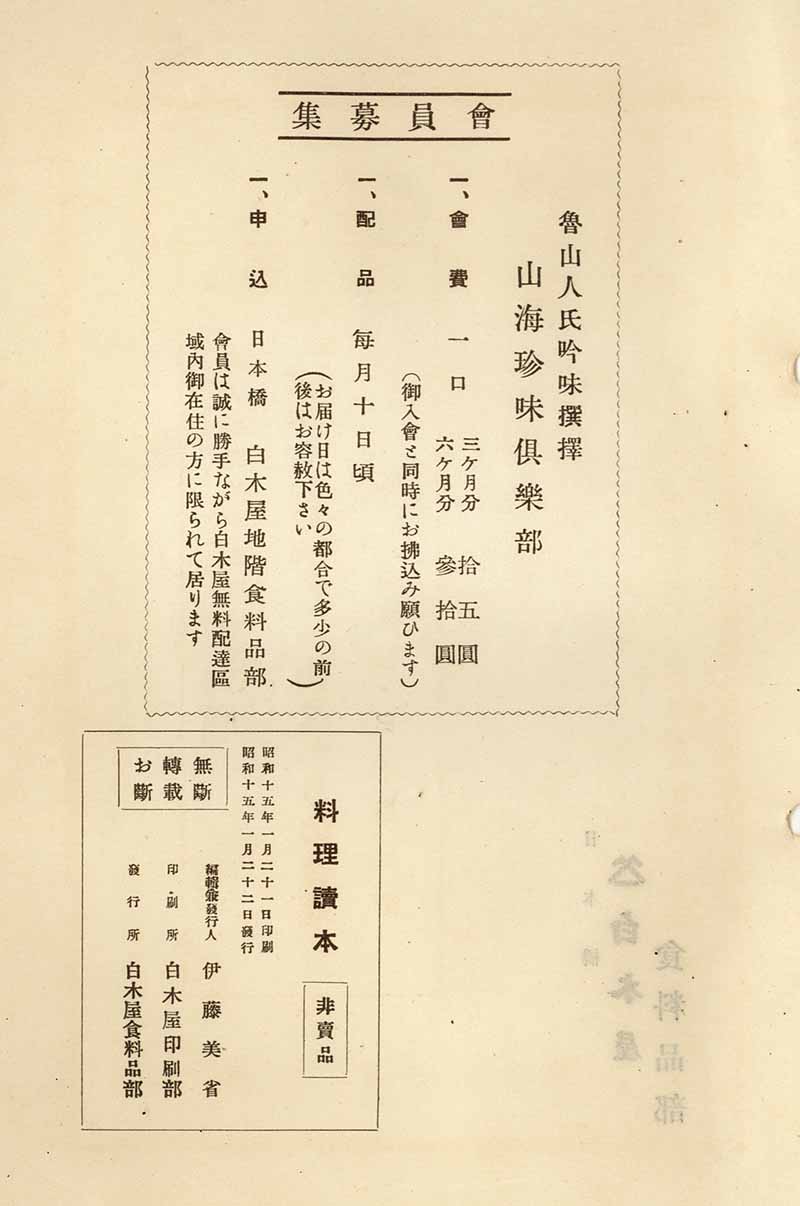 會員募集
魯山人氏吟味撰擇
山海珍味俱樂部
一、會費 一口
三ケ月分 拾五圓
六ケ月分 參拾圓
(御入會と同時にお拂込み願ひます)
一、配品 每月十日頃
(お届け日は色々の都合で多少の前
後はお容赦下さい)
一、申込 日本橋 白木屋地階食料品部
會員は誠に勝手ながら白木屋無料配達區
域內御在住の方に限られて居ります
料理讀本
非賣品
昭和十五年一月二十一日印刷
昭和十五年一月二十二日發行
無斷
轉載
お斷
編輯兼發行人 伊藤美省
印刷所 白木屋印刷部
發行所 白木屋食料品部
食料品部
白木屋
日本橋